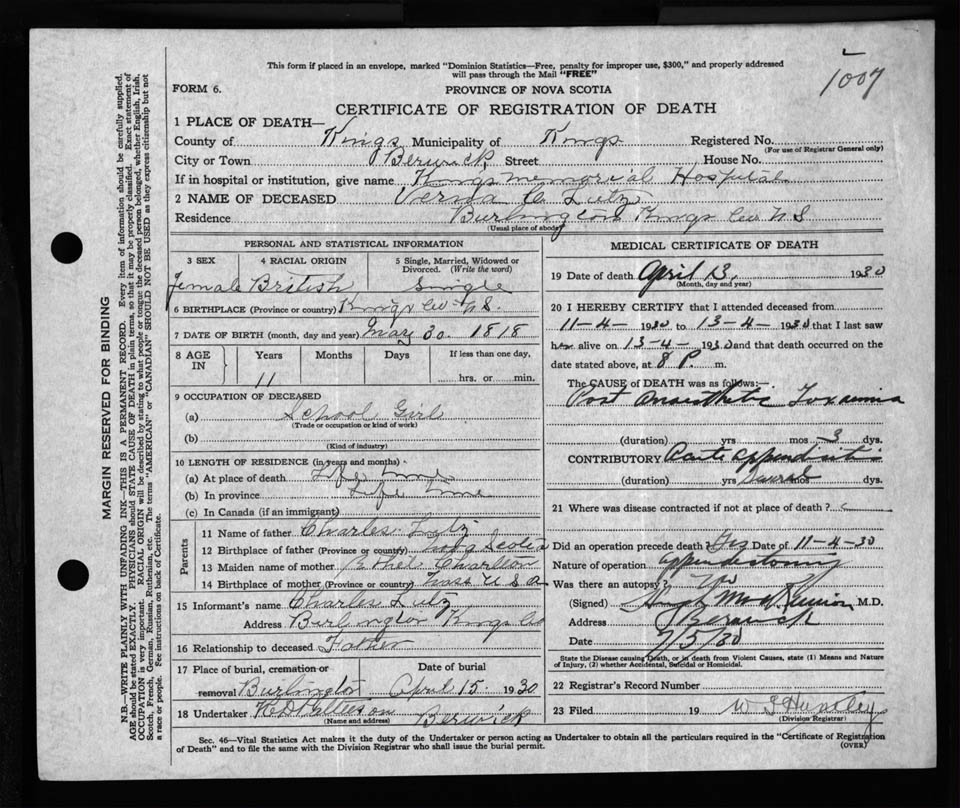 This form if placed in an envelope, marked "Dominion Statistics—Free, penalty for improper use, $300," and properly addressed
will pass through the Mail "FREE"
1007
FORM 6.
PROVINCE OF NOVA SCOTIA
CERTIFICATE OF REGISTRATION OF DEATH
1 PLACE OF DEATH—
County of Kings Municipality of Kings Registered No.
(For use of Registrar General only)
City or Town Berwick Street House No.
If in hospital or institution, give name Kings Memorial Hospital
2 NAME OF DECEASED Verna C Lutz
Residence Burlington Kings Co N S
(Usual place of abode)
PERSONAL AND STATISTICAL INFORMATION
3 SEX 4 RACIAL ORIGIN 5 Single, Married, Widowed or
Divorced. (Write the word)
female British Single
6 BIRTHPLACE (Province or country) Kings Co N.S.
7 DATE OF BIRTH (month, day and year) May 30. 1818
8 AGE IN Years Months Days If less than one day,
11 hrs. or min.
9 OCCUPATION OF DECEASED
(a) School Girl
(Trade or occupation or kind of work)
(b)
(Kind of industry)
10 LENGTH OF RESIDENCE (in years and months)
(a) At place of death Life time
(b) In province Life time
(c) In Canada (if an immigrant)
Parents
11 Name of father Charles Lutz
12 Birthplace of father (Province or country) Nova Scotia
13 Maiden name of mother Ethel Charlton
14 Birthplace of mother (Province or country) Mass U S A
15 Informant's name Charles Lutz
Address Burlington Kings Co
16 Relationship to deceased Father
17 Place of burial, cremation or Date of burial
removal Burlington April 15 1930
18 Undertaker Berwick
(Name and address)
MEDICAL CERTIFICATE OF DEATH
19 Date of death April 13, 1930
(Month, day and year)
20 I HEREBY CERTIFY that I attended deceased from
11-4-1930 to 13-4-1930 that I last saw
h alive on 13-4-1930 and that death occurred on the
date stated above, at 8 P. m.
The CAUSE OF DEATH was as follows:—
Post Anaesthetic Toxaemia
(duration) yrs mos 3 dys.
CONTRIBUTORY Acute appendicitis
(duration) yrs dys.
21 Where was disease contracted if not at place of death?
Did an operation precede death? Yes Date of 11-4-30
Nature of operation appendectomy
Was there an autopsy? No
(Signed) M.D.
Address Berwick
Date 7/5/30
State the Disease causing Death, or in death from Violent Causes, state (1) Means and Nature
of Injury, (2) whether Accidental, Suicidal or Homicidal.
22 Registrar's Record Number
23 Filed 19 W S Huntley
(Division Registrar)
Sec. 46—Vital Statistics Act makes it the duty of the Undertaker or person acting as Undertaker to obtain all the particulars required in the "Certificate of Registration
of Death" and to file the same with the Division Registrar who shall issue the burial permit.
(OVER)
MARGIN RESERVED FOR BINDING
N.B.—WRITE PLAINLY WITH UNFADING INK—THIS IS A PERMANENT RECORD. Every item of information should be carefully supplied.
AGE should be stated EXACTLY. PHYSICIANS should STATE CAUSE OF DEATH in plain terms, so that it may be properly classified. Exact statement of
OCCUPATION is very important. RACIAL ORIGIN will be described by stating to what people or tongue the deceased person belonged, whether English, Irish,
Scotch, French, German, Russian, Ruthenian, etc. The terms "AMERICAN" or "CANADIAN" SHOULD NOT BE USED as they express citizenship but not
a race or people. See instructions on back of Certificate.